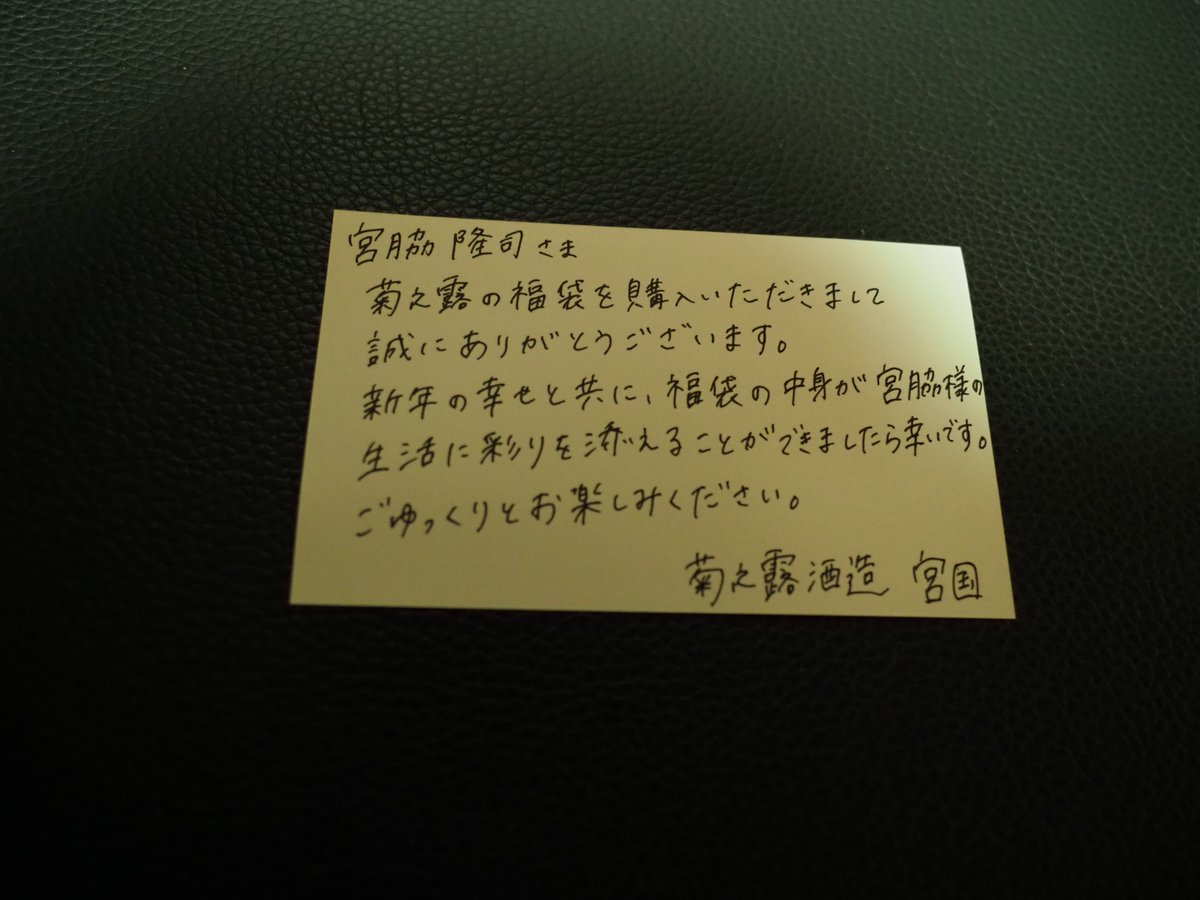 宮脇 隆司さま
菊之露の福袋を購入いただきまして
誠にありがとうございます。
新年の幸せと共に、福袋の中身が宮脇様の
生活に彩りを添えることができましたら幸いです。
ごゆっくりとお楽しみください。
菊之露酒造 宮国